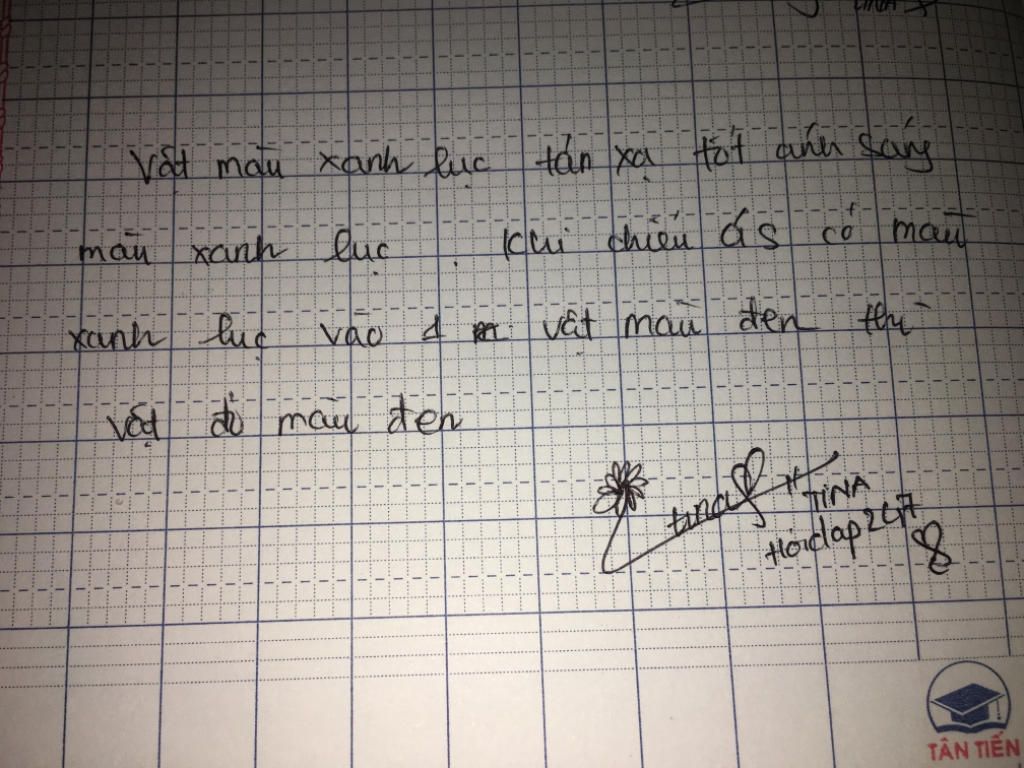 Vật màu xanh lục tán xạ tốt ánh sáng
màu xanh lục. Khi chiếu ás có màu
xanh lục vào 1 vật màu đen thì
vật đó màu đen
tina
TINA
Hoidap247
TÂN TIẾN